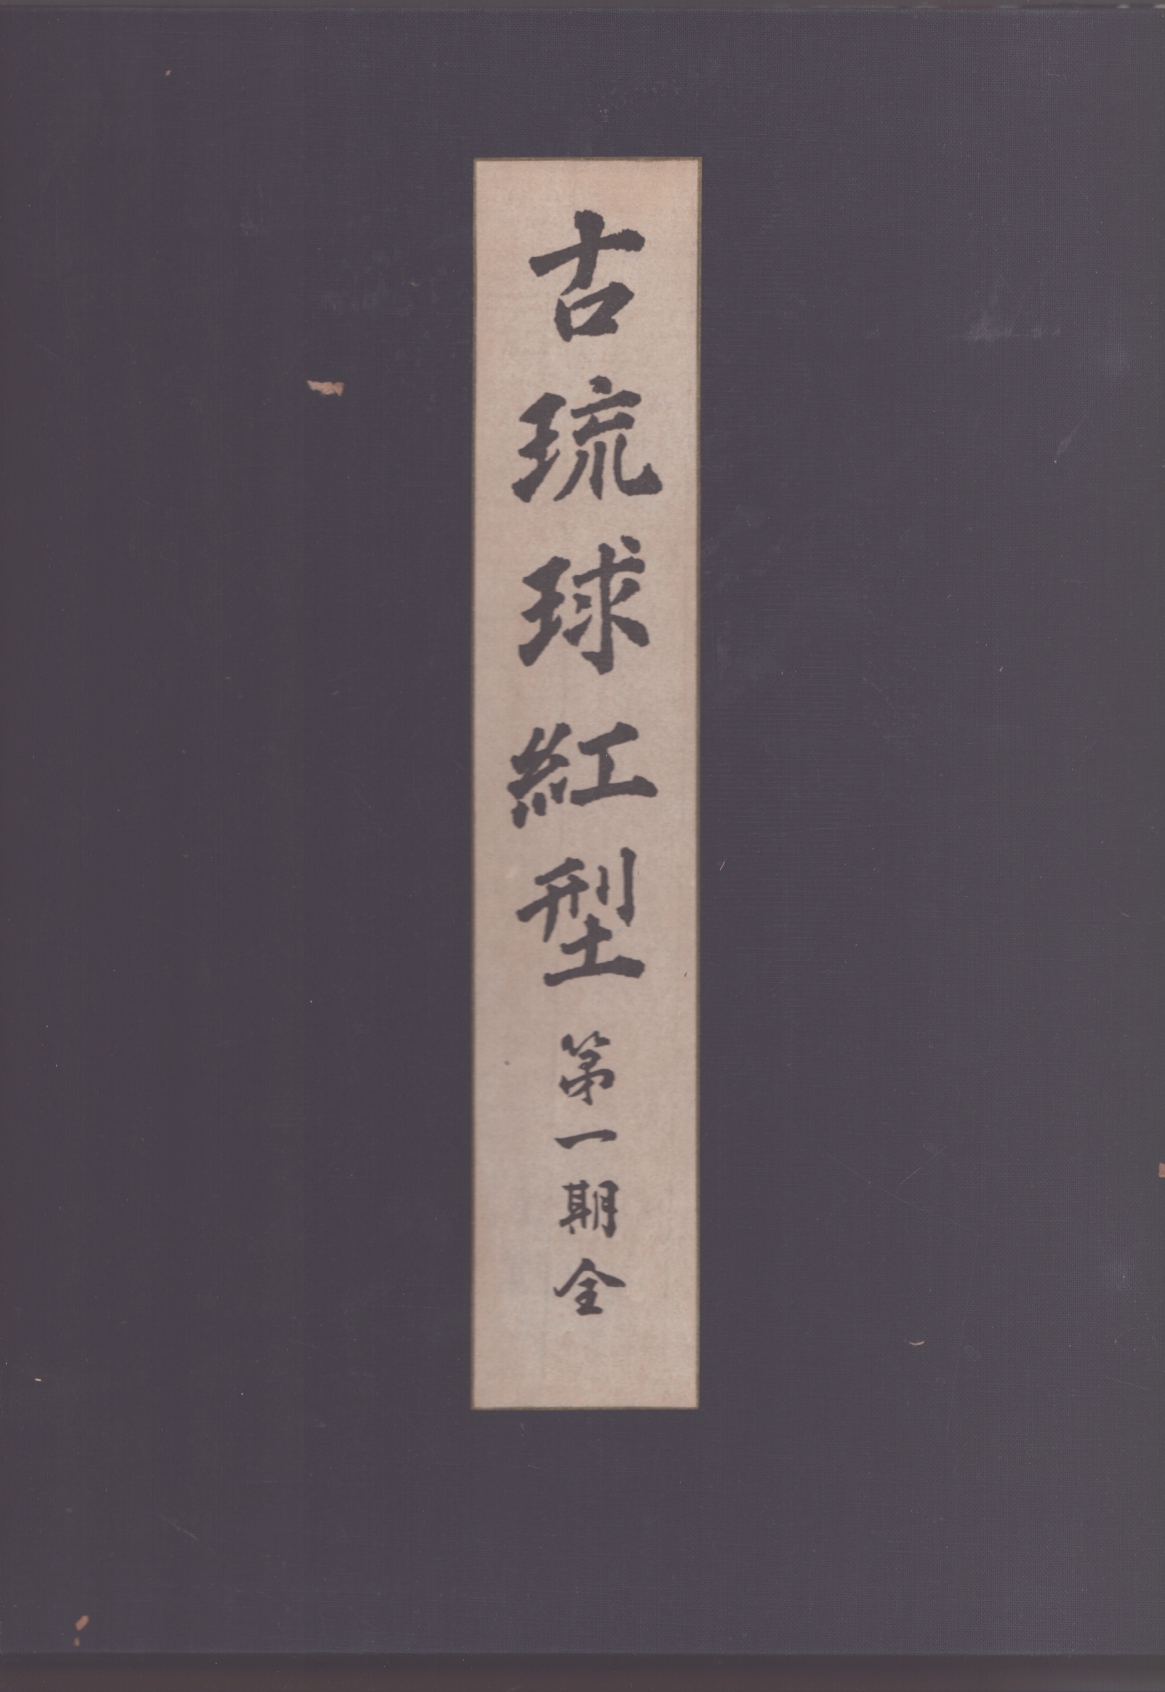 古琉球紅型第一期全